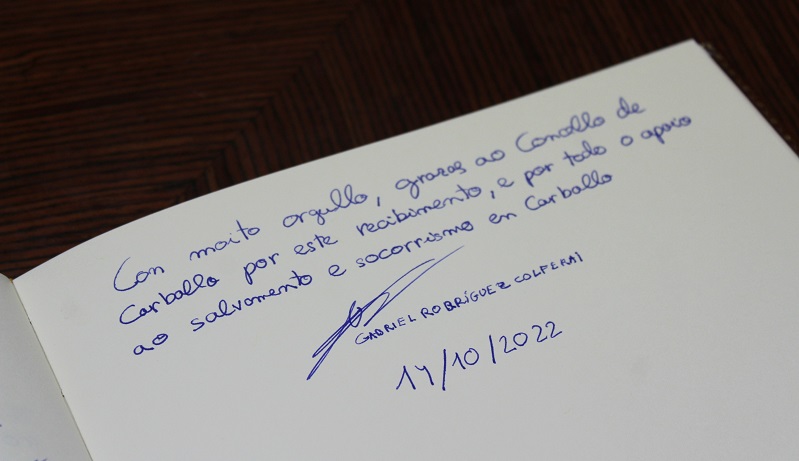 Con moito orgullo, grazas ao Concello de
Carballo por este recibimento, e por todo o apoio
ao salvamento e socorrismo en Carballo
GABRIEL RODRÍGUEZ COLFERAI
14/10/2022